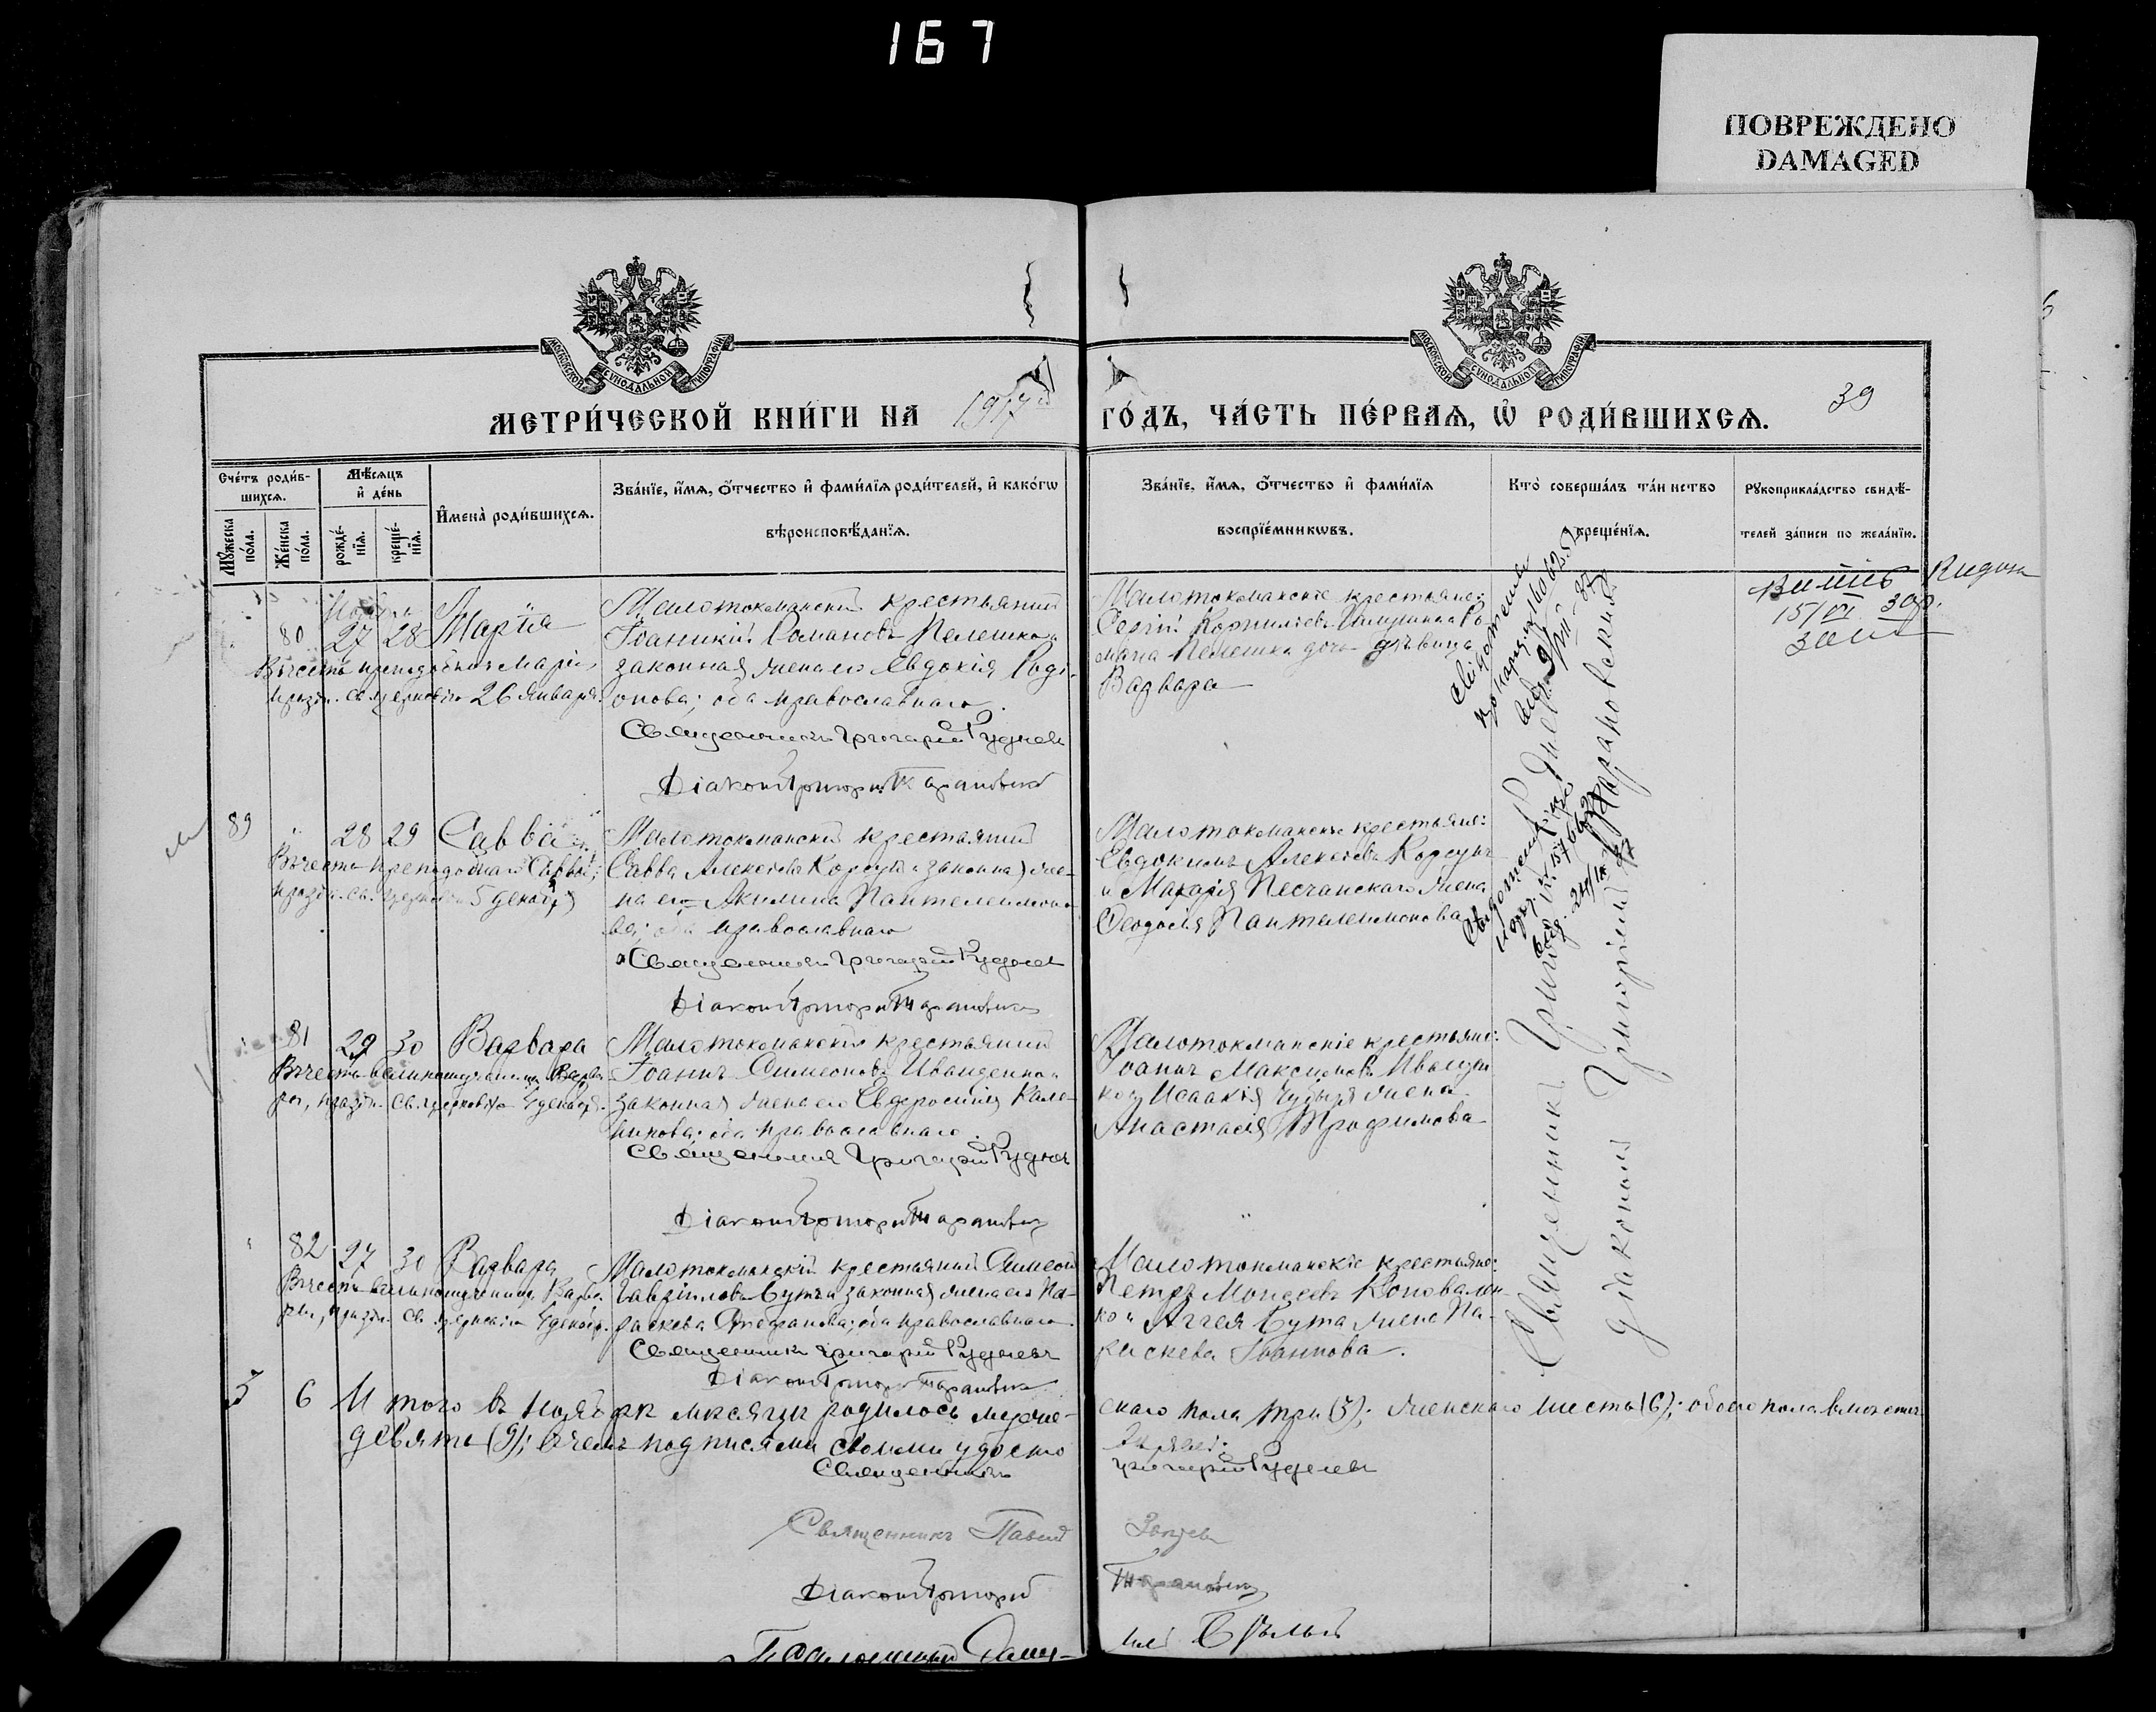 167
ПОВРЕЖДЕНО
DAMAGED
МОСКОВСКОЙ СѴНОДАЛЬНОЙ ТИПОГРАФІИ
МОСКОВСКОЙ СѴНОДАЛЬНОЙ ТИПОГРАФІИ
МЕТРИ́ЧЕСКОЙ КНИ́ГИ НА 1917й ГО́ДЪ, ЧА́СТЬ ПЕ́РВАЯ, Ѡ҆ РОДИ́ВШИХСЯ.
39
Сче́тъ роди́в-
шихся.
Мꙋ́жеска по́ла.
Же́нска по́ла.
Мѣ́сяцъ
и҆ де́нь
рожде́-
нїя.
креще́-
нїя.
И҆мена̀ роди́вшихся.
Зва́нїе, и҆́мя, ѻ҆́тчество и҆ фами́лїя роди́телей, и҆ како́гѡ
вѣроисповѣ́данїя.
Зва́нїе, и҆́мя, ѻ҆́тчество и҆ фами́лїя
воспрїе́мникѡвъ.
Кто̀ соверша́лъ та́инство
креще́нїя.
Рꙋкоприкла́дство свидѣ́-
телей за́писи по жела́нїю.
80 27 28 Марія
Въ честь преподобныя Маріи,
празд. св. церковію 26 января.
Малотокманскій крестьянинъ
Іоанникій Романовъ Пелешко и
законная жена его Евдокія Роді-
онова; оба православнаго.
Священникъ Григорій Руднев
Діаконъ Григорій Тарановскій
Малотокманскіе крестьяне:
Сергій Корниліевъ и Ро-
мана Пелешка дочь дѣвица
Варвара
15/VI 30р.
89 28 29 Савва
Въ честь преподобнаго Саввы,
празд. св. церковію 5 декабря
Малотокманскій крестьянинъ
Савва Алексіевъ Корсунъ и законная же-
на его Акилина Пантелеимоно-
ва; оба православнаго
Священникъ Григорій Руднев
Діаконъ Григорій Тарановскій
Малотокманскіе крестьяне:
Евдокимъ Алексіевъ Корсунъ
и Макарія Песчанскаго жена
Ѳеодосія Панталеимонова
81 29 30 Варвара
Въ честь великомученицы Варва-
ры, празд. св. церковію 4 декабря.
Малотокманскій крестьянинъ
Іоаннъ Симеоновъ Иващенко и
законная жена его Евфросинія Кале-
никова; оба православнаго.
Священникъ Григорій Руднев
Діаконъ Григорій Тарановскій
Малотокманскіе крестьяне:
Іоаннъ Максимовъ Иващен-
ко и Исаакія Чубыря жена
Анастасія Трофимова
82 27 30 Варвара
Въ честь великомученицы Варва-
ры, празд. св. церковію 4 декабр.
Малотокманскій крестьянинъ Симеонъ
Гавріиловъ Бута и законная жена его Па-
раскева Стефанова; оба православнаго.
Священникъ Григорій Рудневъ
Діаконъ Григорій Тарановскій
Малотокманскіе крестьяне:
Петръ Моисеевъ Коновален-
ко и Аггея Бута жена Па-
раскева Іоаннова.
Священникъ Григорій Руднев
діаконъ Григорій Тарановскій
3 6 Итого въ ноябрѣ мѣсяцѣ родилось муже-
скаго пола три (3); женскаго шесть (6); обоего пола вмѣстѣ
девять (9); в чемъ подписями своими удосто-
вѣряемъ:
Священникъ Григорій Руднев
Священникъ Павелъ
Діаконъ Григорій Тарановскій